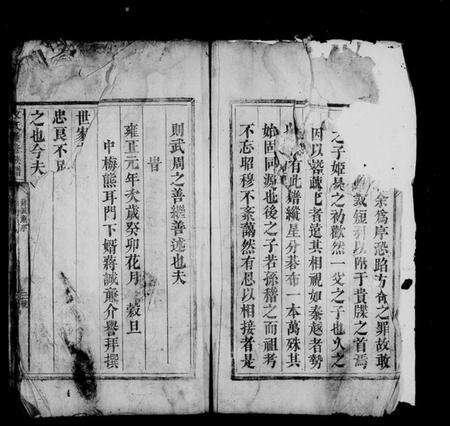 余為序恐蹈方命之罪故敢
綴短列以附于貴牒之首焉
之子姬㫷之初歡然一父之子也久之
因以蕃蔬之者遠其相視如秦越者勢
有此譜縱星分碁布一本萬殊其
始固同源也後之子若孫稽之而祖考
不忘昭穆不紊藹然有恩以相接者是
則武周之善繼善述也夫
時
雍正元年大歲癸卯花月 穀旦
中梅熊耳門下婿蔣誠齋介譽拜撰
世家
忠良不
之也今夫